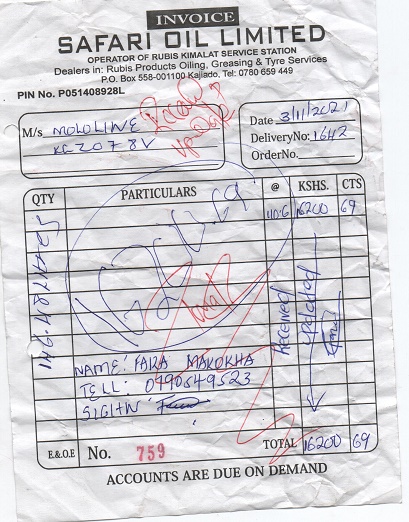 INVOICE
SAFARI OIL LIMITED
OPERATOR OF RUBIS KIMALAT SERVICE STATION
Dealers in: Rubis Products Oiling, Greasing & Tyre Services
P.O. Box 558-001100 Kajiado, Tel: 0780 659 449
PIN No. P051408928L
M/s MOLOLINE
KCZ 078V
Date 3/11/2021
DeliveryNo: 1642
OrderNo.
QTY PARTICULARS @ KSHS. CTS
110.6 16200 69
Received
NAME: FARA MAKOKHA
TELL: 0790649523
SIGHN:
E.&O.E No. 759 TOTAL 16200 69
ACCOUNTS ARE DUE ON DEMAND